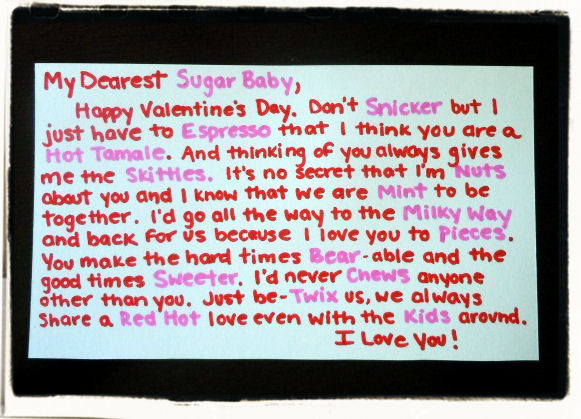 My Dearest Sugar Baby,
Happy Valentine's Day. Don't Snicker but I
just have to Espresso that I think you are a
Hot Tamale. And thinking of you always gives
me the Skittles. It's no secret that I'm Nuts
about you and I know that we are Mint to be
together. I'd go all the way to the Milky Way
and back for us because I love you to Pieces.
You make the hard times Bear-able and the
good times Sweeter. I'd never Chews anyone
other than you. Just be-Twix us, we always
share a Red Hot love even with the Kids around.
I Love You!